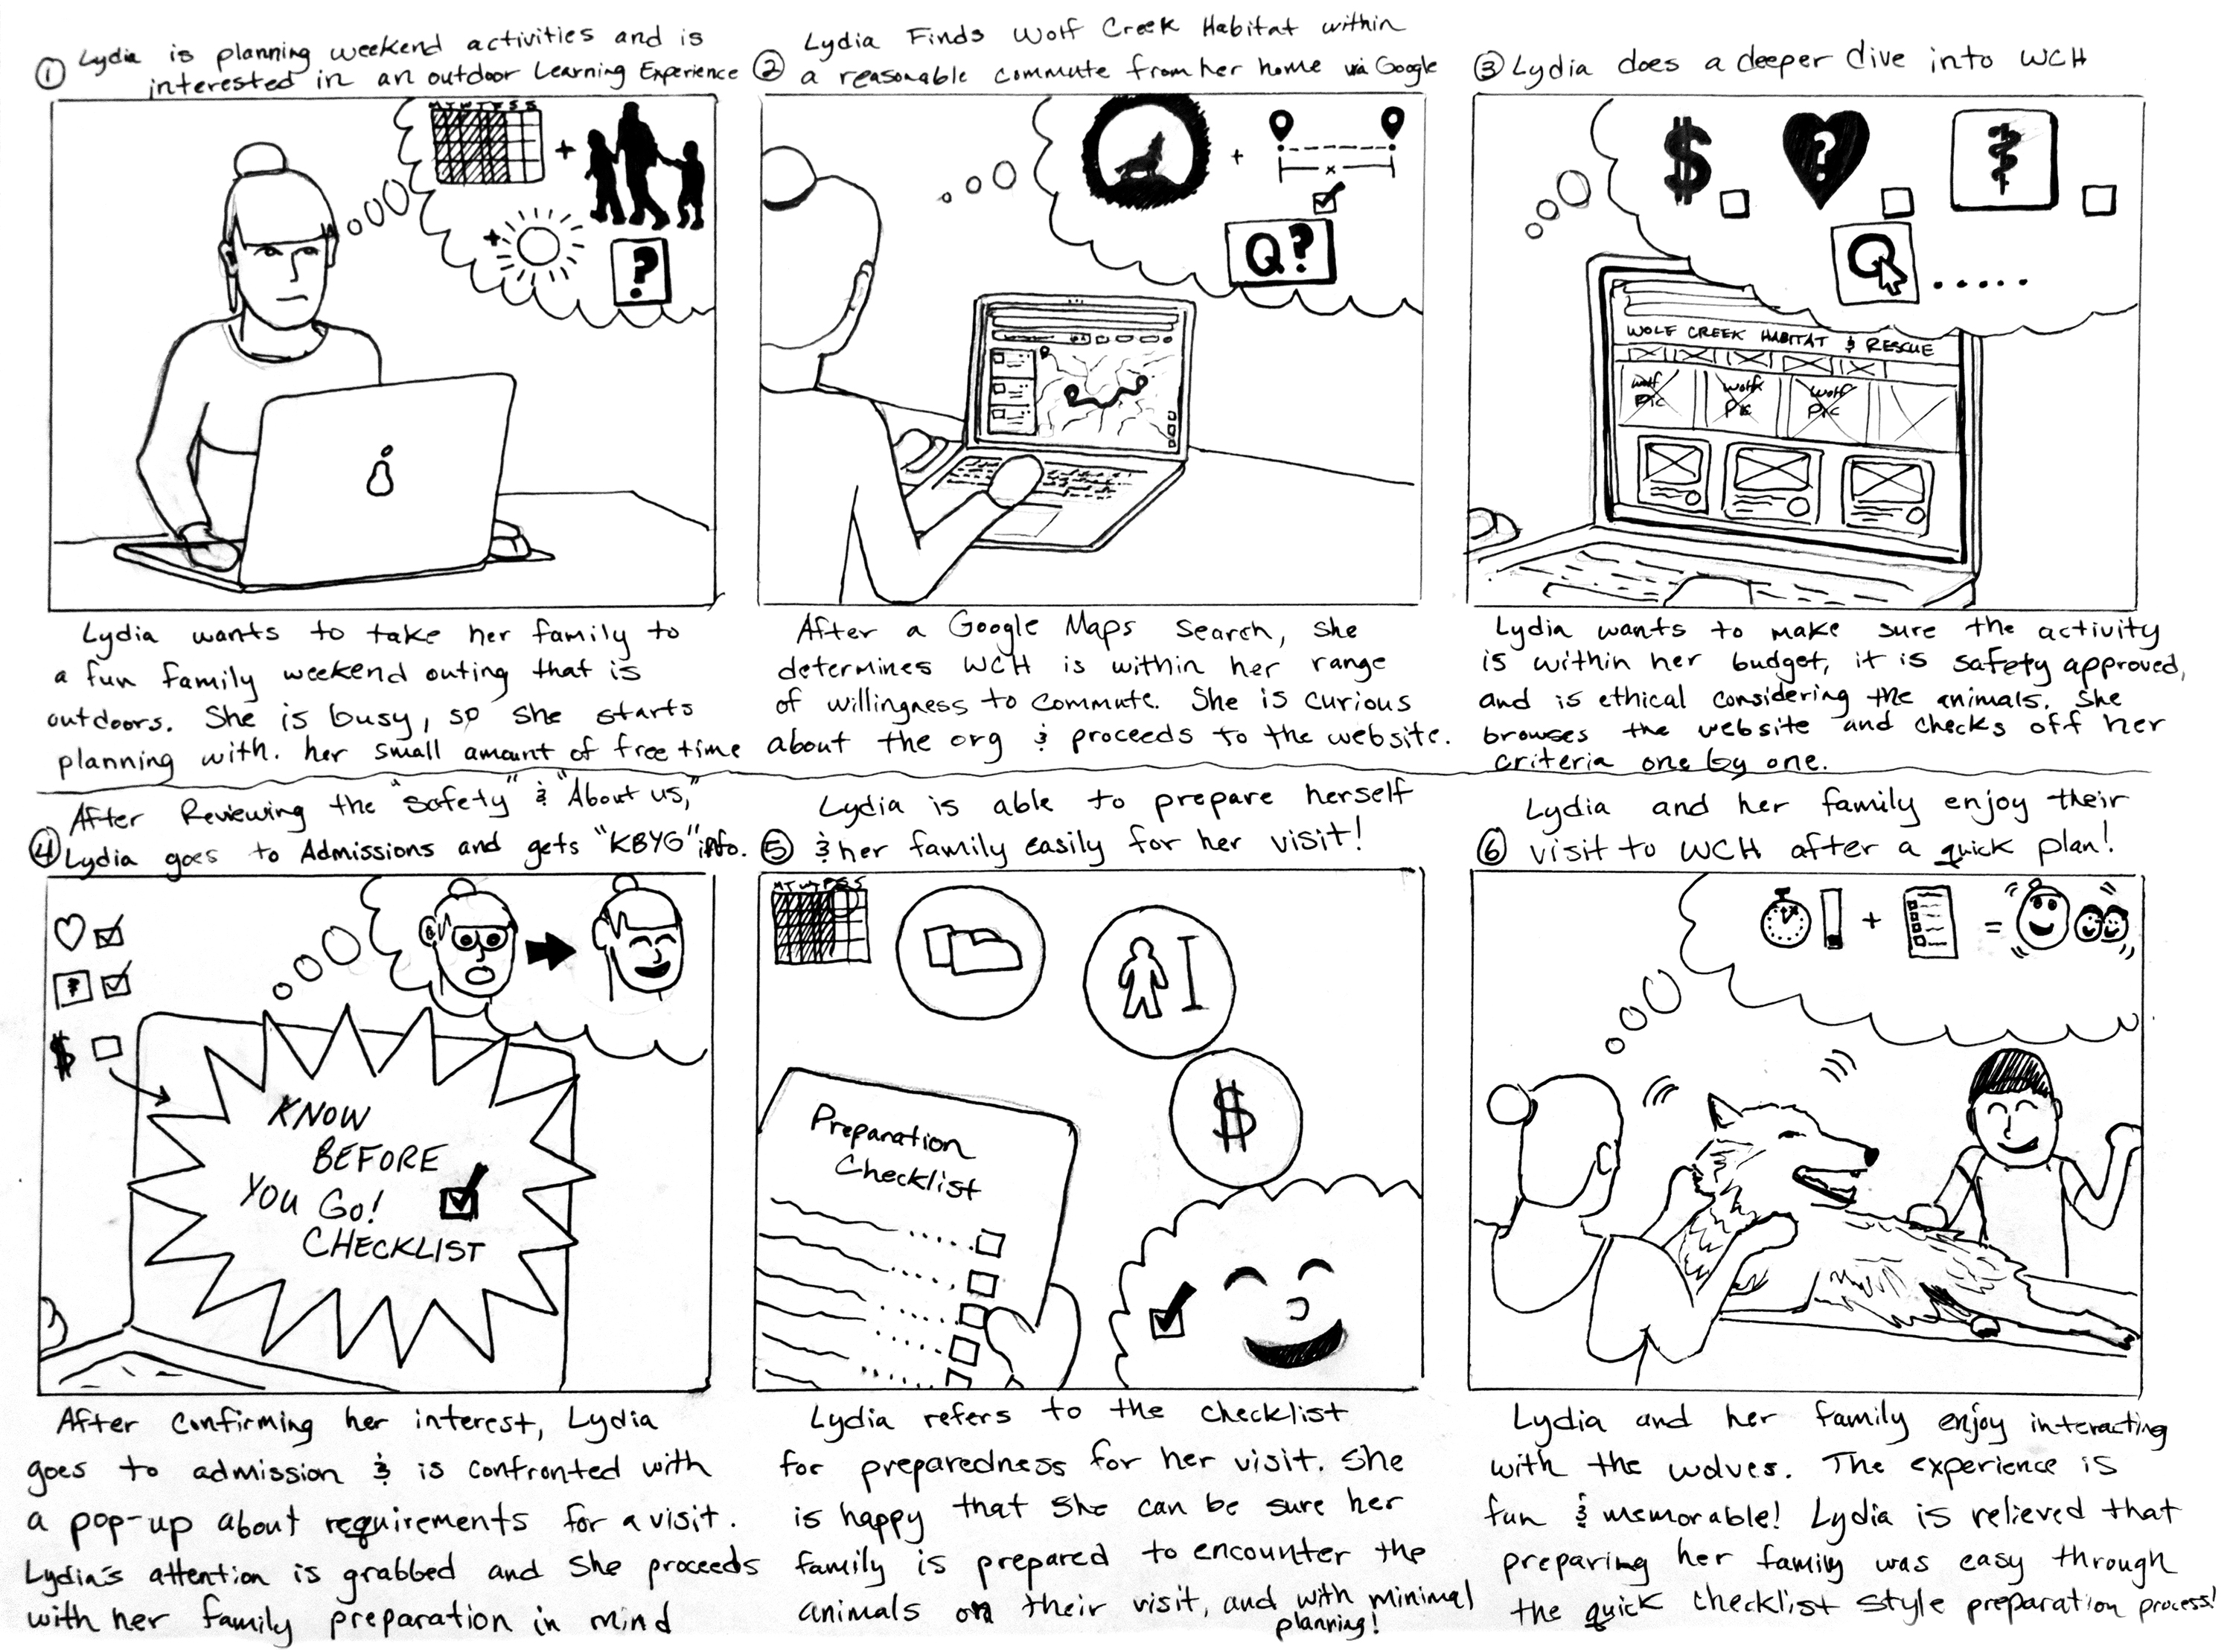 ① Lydia is planning weekend activities and is
interested in an outdoor Learning Experience
MTWTFSS
+
+
?
Lydia wants to take her family to
a fun family weekend outing that is
outdoors. She is busy, so she starts
planning with. her small amount of free time
② Lydia Finds Wolf Creek Habitat within
a reasonable commute from her home via Google
+
x
Q?
After a Google Maps search, she
determines WCH is within her range
of willingness to commute. She is curious
about the org & proceeds to the website.
③ Lydia does a deeper dive into WCH
$ ?
Q .....
WOLF CREEK HABITAT & RESCUE
wolf Pic
wolf Pic
wolf Pic
Lydia wants to make sure the activity
is within her budget, it is safety approved,
and is ethical considering the animals. She
browses the website and checks off her
criteria one by one.
④ After Reviewing the "safety" & "About us,"
Lydia goes to Admissions and gets "KBYG" info.
$
KNOW
BEFORE
YOU GO!
CHECKLIST
After confirming her interest, Lydia
goes to admission & is confronted with
a pop-up about requirements for a visit.
Lydia's attention is grabbed and she proceeds
with her family preparation in mind
⑤ Lydia is able to prepare herself
& her family easily for her visit!
MTWTFSS
$
Preparation
Checklist
Lydia refers to the checklist
for preparedness for her visit. She
is happy that she can be sure her
family is prepared to encounter the
animals on their visit, and with minimal
planning!
⑥ Lydia and her family enjoy their
visit to WCH after a quick plan!
+ =
Lydia and her family enjoy interacting
with the wolves. The experience is
fun & memorable! Lydia is relieved that
preparing her family was easy through
the quick checklist style preparation process!